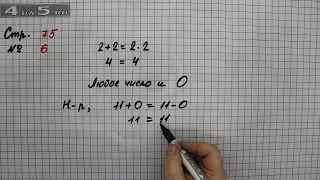 4DA5.RU
Стр. 75
№ 6
2+2 = 2·2
4 = 4
Любое число и 0
Н-р, 11+0 = 11-0
11 = 11